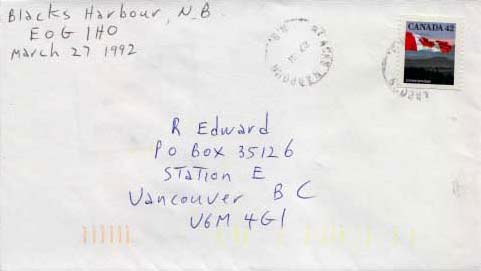 Blacks Harbour, N.B
E0G 1H0
March 27 1992
CANADA 42
R Edward
PO Box 35126
Station E
Vancouver BC
V6M 4G1